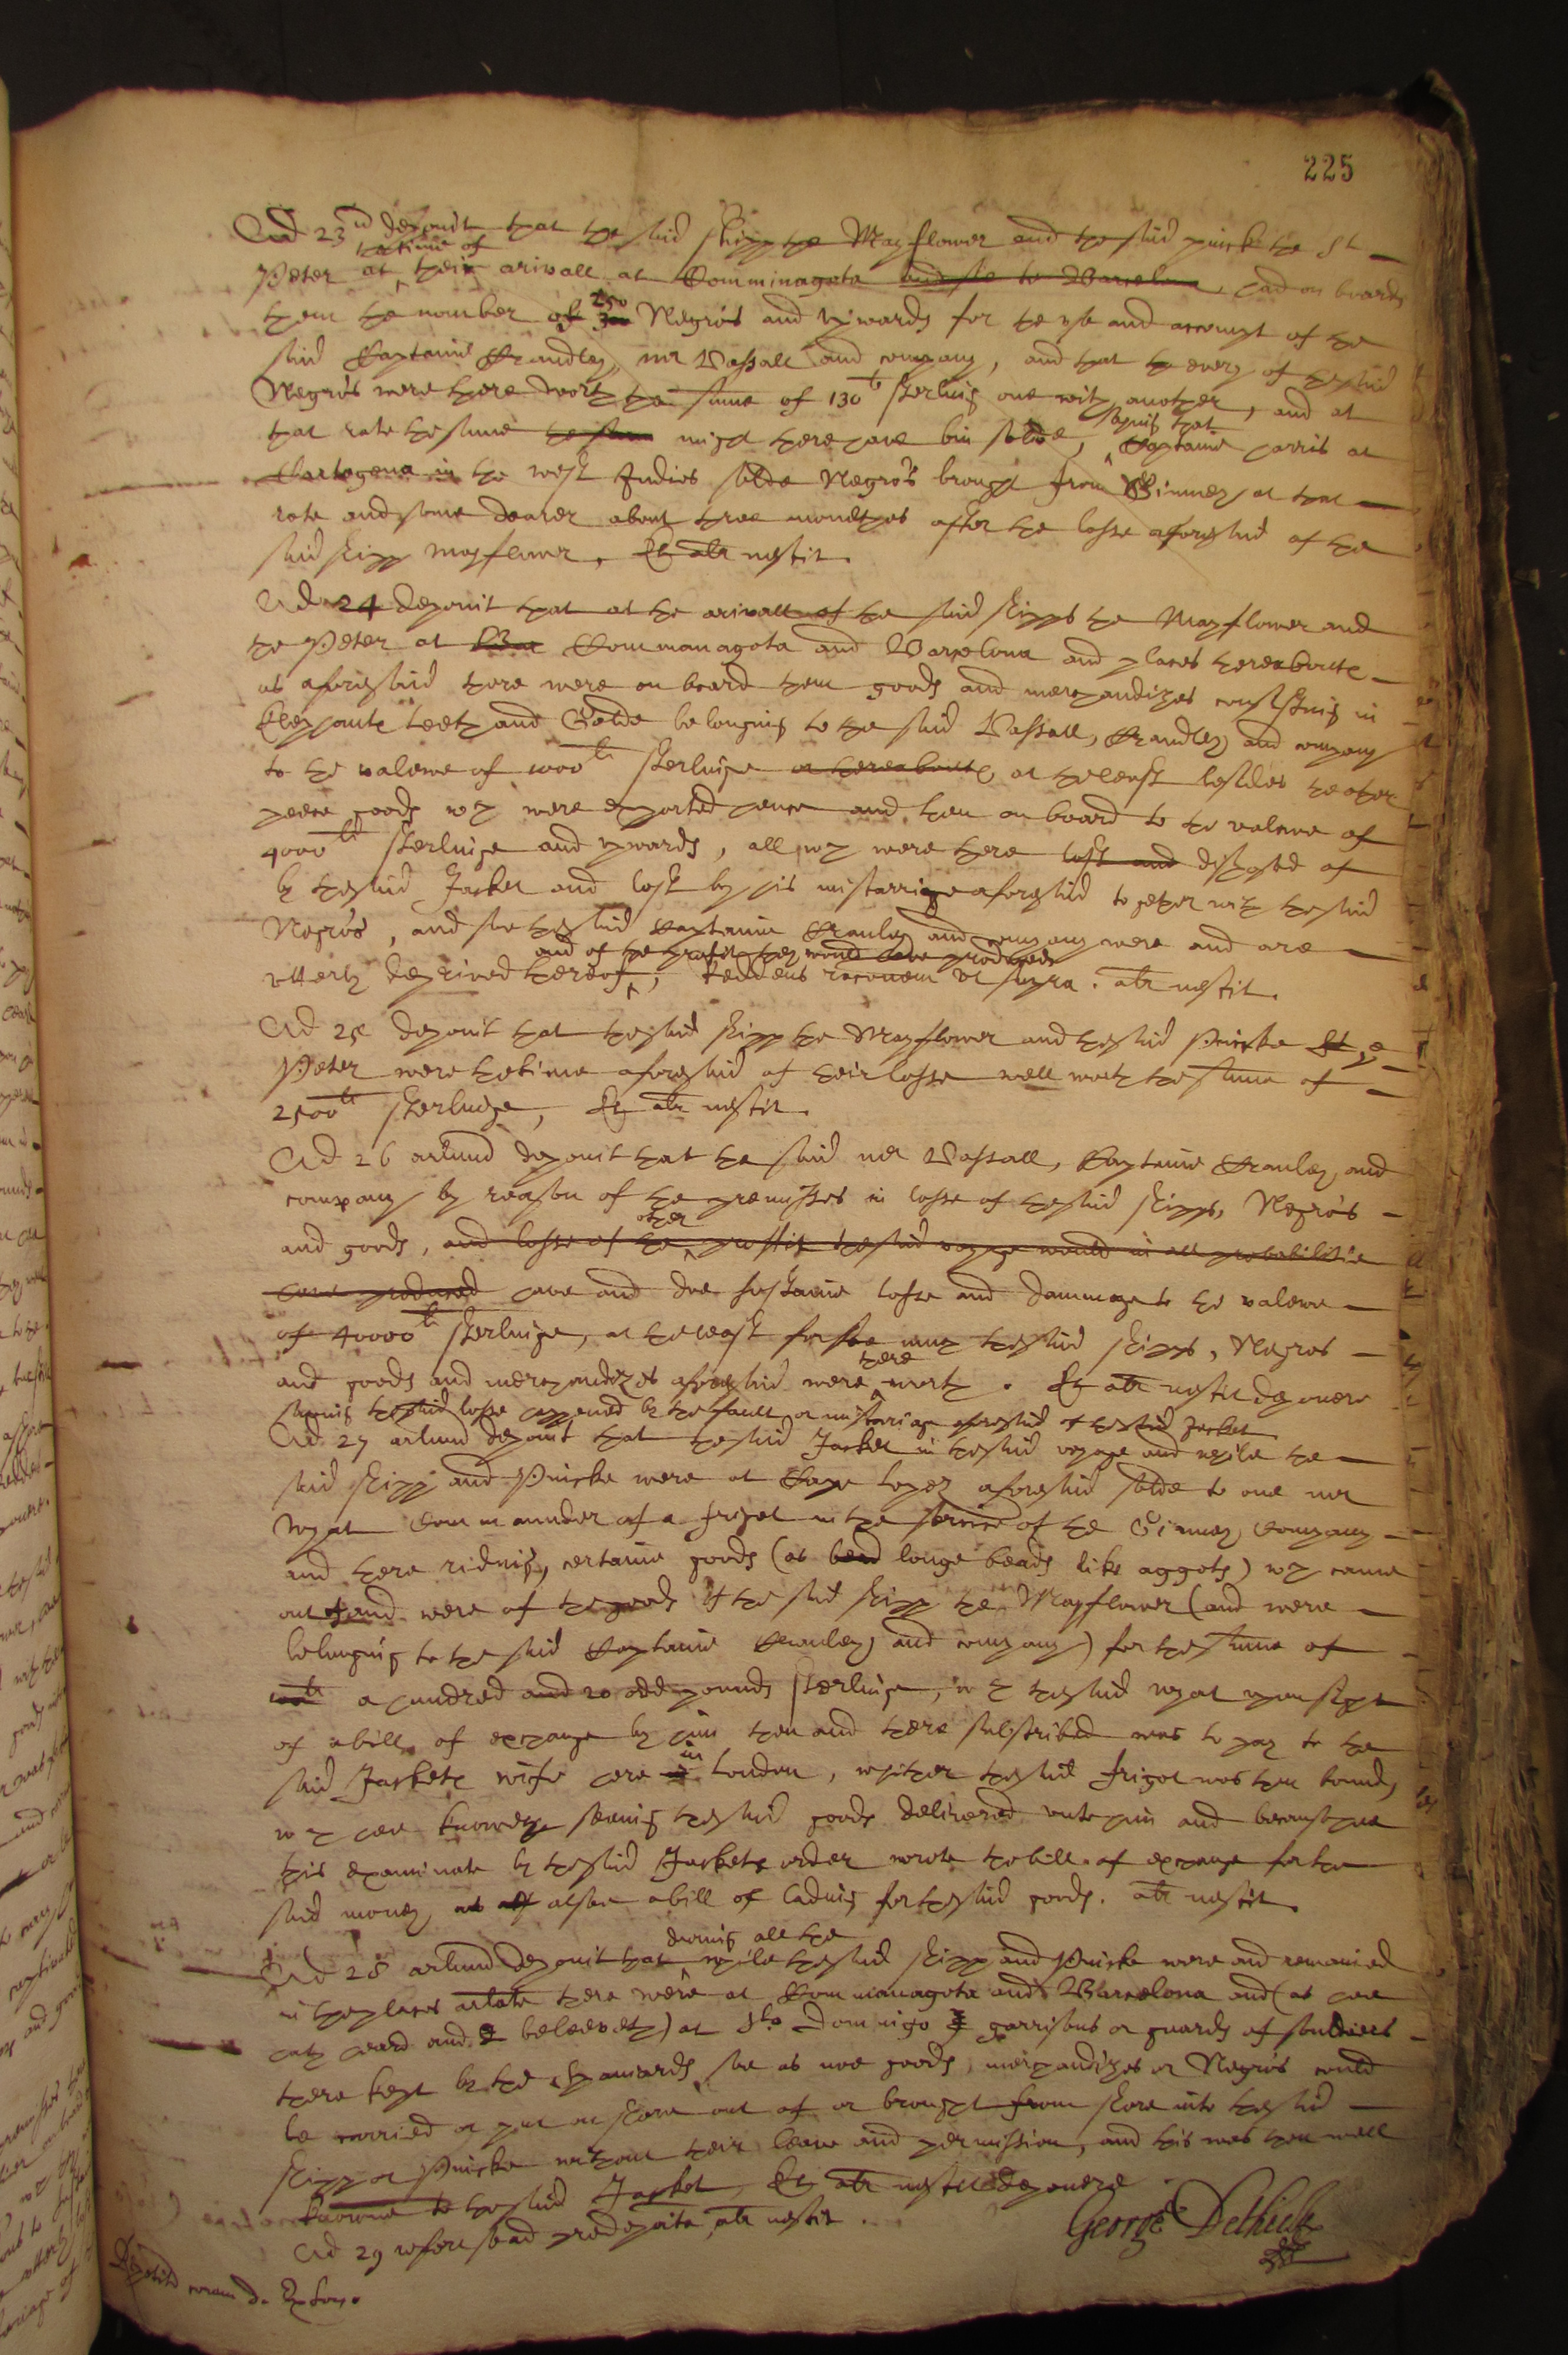 225
Ad 23<sup>um</sup> deponit that the said shipp the Mayflower and the said pincke the St
Peter at the time of their arivall at Comminagota <s>and soe to Barcelona</s> had on board
them the number of <s>300</s> 250 Negro's and upwards for the use and accompt of the
said Captaine Crandley, mr Vassall and company, and that the every of the said
Negro's were there worth the summe of 130 li sterling one with another, and at
that rate the same <s>the same</s> might there have bin solde, saying that Captaine harris at
Cartagena in the west Indies solde Negro's brought from Ginney at that
rate and some dearer about three monethes after the losse aforesaid of the
said shipp mayflower, Et alr nescit.
Ad 24 deponit that at the arivall of the said shipps the Mayflower and
the Peter at <s>Bar</s> Commanagota and Barcelona and places thereaboute
as aforesaid there were on board them goods and merchandizes consisting in
Elephants teeth and Golde belonging to the said Vassall, Crandley and company
to the valewe of 1000 li sterlinge <s>or thereabouts</s> at the least besides the other
peece goods wch were exported hence and then on board to the valewe of
4000 li sterlinge and upwards, all wch were there <s>lost and</s> disposed of
by the said Jasket and lost by his miscarriage aforesaid together with the said
Negro's, and soe the said Captaine Cranley and company were and are
utterly deprived thereof, and of the profitt they would have produced, reddens rationem ut supra. alr nescit.
Ad 25 deponit that the said shipp the Mayflower and the said Pincke <s>St</s> the
Peter were the time aforesaid of their losse well worth the summe of
2500 li sterlinge, Et alr nescit.
Ad 26 arlum deponit that the said mr Vassall, Captaine Cranley and
company by reason of the premisses in losse of the said shipps, Negro's
and goods, <s>and losse of the other proffitt the said voyage would in all probabilitie</s>
<s>have produced</s> have and doe sustaine losse and dammage to the valewe
of 40000 li sterlinge, at the least for soe much the said shipps, Negros
and goods and merchandizes aforesaid were there worth. Et alr nescit deponere
saving the said losse happened by the fault or miscarriage aforesaid of the said Jasket
Ad 27 arlum deponit that the said Jasket in the said voyage and while the
said shipp and Pincke were at Cape Lopez aforesaid solde to one mr
Wyat Commander of a friget in the service of the Ginney Company
and there riding, certaine goods (as <s>bead</s> longe beads like aggots) wch came
out of and were of the goods of the said shipp the Mayflower (and were
belonging to the said Captaine Cranley and company) for the summe of
<s>100 li</s> a hundred and 20 odd pounds sterlinge, wch the said Wyat upon sight
of a bill of exchange by him then and there subscribed was to pay to the
said Jaskets wife here in London, whither the said frigot was then bound,
wch hee knoweth seeing the said goods delivered unto him and because hee
this examinate by the said Jaskets order wrote the bill of exchange for the
said money as alsoe a bill of lading for the said goods. alr nescit
Ad 28 arlum deponit that during all the while the said shipp and Pincke were and remained
in the places arlate there were at Commanagota and Barcelona and (as hee
hath heard and beleeveth) at Sto Domingo garrisons or guards of souldiers
there kept by the Spaniards, soe as noe goods, merchandizes or Negro's could
be carried or put on shore out of or brought from shore into the said
shipp or Pincke without their leave and permission, and this was then well
knowne to the said Jasket, Et alr nescit deponere
Ad 29 refert se ad predeposita, alr nescit.
George Dethick
Repetitu coram dr